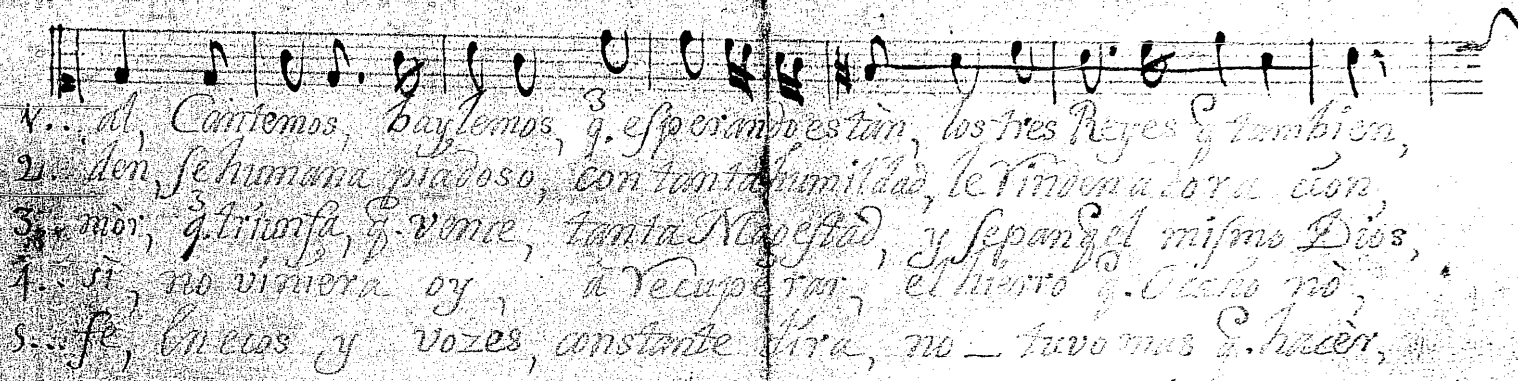 1.. al, Cantemos, baylemos, q. esperando estàn, los tres Reyes q tambien,
2.. den, se humana piadoso, con tanta humildad, le Rinden adora cion,
3.. mòr, q. triunfa, q. vence, tanta Magestad, y sepan q el mismo Dios,
4.. sì, no viniera oy, à Recuperar, el hierro q. nò,
5... fè, En ecos y vozes, constante dira, no _ tuvo mas q. hacèr,